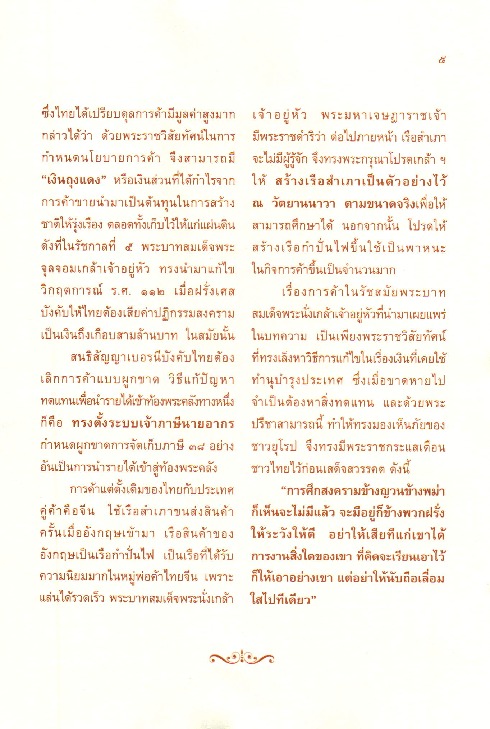 ๕
ซึ่งไทยได้เปรียบดุลการค้ามีมูลค่าสูงมาก
กล่าวได้ว่า ด้วยพระราชวิสัยทัศน์ในการ
กำหนดนโยบายการค้า จึงสามารถมี
“เงินถุงแดง” หรือเงินส่วนที่ได้กำไรจาก
การค้าขายนำมาเป็นต้นทุนในการสร้าง
ชาติให้รุ่งเรือง ตลอดทั้งเก็บไว้ให้แก่แผ่นดิน
ดังที่ในรัชกาลที่ ๕ พระบาทสมเด็จพระ
จุลจอมเกล้าเจ้าอยู่หัว ทรงนำมาแก้ไข
วิกฤตการณ์ ร.ศ. ๑๑๒ เมื่อฝรั่งเศส
บังคับให้ไทยต้องเสียค่าปฏิกรรมสงคราม
เป็นเงินถึงเกือบสามล้านบาท ในสมัยนั้น
สนธิสัญญาเบอรนีบังคับไทยต้อง
เลิกการค้าแบบผูกขาด วิธีแก้ปัญหา
ทดแทนเพื่อนำรายได้เข้าท้องพระคลังทางหนึ่ง
ก็คือ ทรงตั้งระบบเจ้าภาษีนายอากร
กำหนดผูกขาดการจัดเก็บภาษี ๓๘ อย่าง
อันเป็นการนำรายได้เข้าสู่ท้องพระคลัง
การค้าแต่ดั้งเดิมของไทยกับประเทศ
คู่ค้าคือจีน ใช้เรือสำเภาขนส่งสินค้า
ครั้นเมื่ออังกฤษเข้ามา เรือสินค้าของ
อังกฤษเป็นเรือกำปั่นไฟ เป็นเรือที่ได้รับ
ความนิยมมากในหมู่พ่อค้าไทยจีน เพราะ
แล่นได้รวดเร็ว พระบาทสมเด็จพระนั่งเกล้า
เจ้าอยู่หัว พระมหาเจษฎาราชเจ้า
มีพระราชดำริว่า ต่อไปภายหน้า เรือสำเภา
จะไม่มีผู้รู้จัก จึงทรงพระกรุณาโปรดเกล้า ฯ
ให้ สร้างเรือสำเภาเป็นตัวอย่างไว้
ณ วัดยานนาวา ตามขนาดจริงเพื่อให้
สามารถศึกษาได้ นอกจากนั้น โปรดให้
สร้างเรือกำปั่นไฟขึ้นใช้เป็นพาหนะ
ในกิจการค้าขึ้นเป็นจำนวนมาก
เรื่องการค้าในรัชสมัยพระบาท
สมเด็จพระนั่งเกล้าเจ้าอยู่หัวที่นำมาเผยแพร่
ในบทความ เป็นเพียงพระราชวิสัยทัศน์
ที่ทรงเล็งหาวิธีการแก้ไขในเรื่องเงินที่เคยใช้
ทำนุบำรุงประเทศ ซึ่งเมื่อขาดหายไป
จำเป็นต้องหาสิ่งทดแทน และด้วยพระ
ปรีชาสามารถนี้ ทำให้ทรงมองเห็นภัยของ
ชาวยุโรป จึงทรงมีพระราชกระแสเตือน
ชาวไทยไว้ก่อนเสด็จสวรรคต ดังนี้
“การศึกสงครามข้างญวนข้างพม่า
ก็เห็นจะไม่มีแล้ว จะมีอยู่ก็ข้างพวกฝรั่ง
ให้ระวังให้ดี อย่าให้เสียทีแก่เขาได้
การงานสิ่งใดของเขา ที่คิดจะเรียนเอาไว้
ก็ให้เอาอย่างเขา แต่อย่าให้นับถือเลื่อม
ใสไปทีเดียว”